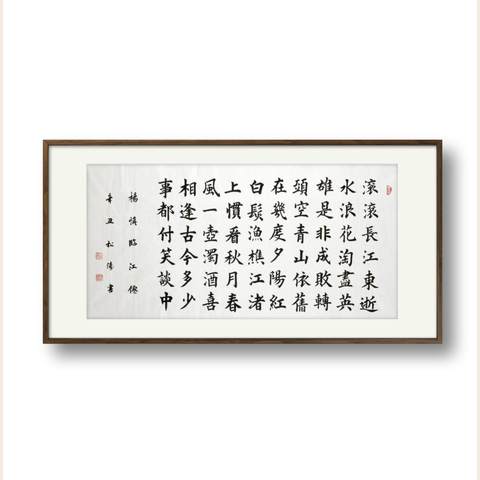 滾滾長江東逝
水浪花淘盡英
雄是非成敗轉
頭空青山依舊
在幾度夕陽紅
白髮漁樵江渚
上慣看秋月春
風一壺濁酒喜
相逢古今多少
事都付笑談中
楊慎臨江僊
辛丑松濤書